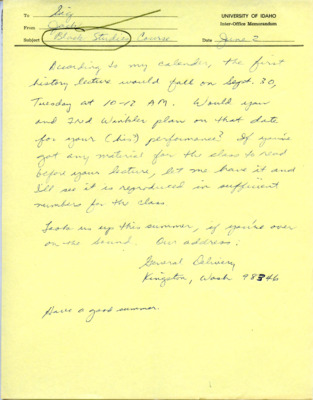 To Sig
UNIVERSITY OF IDAHO
From Jackie
Inter-Office Memorandum
Subject Black Studies Course
Date June 2
According to my calender, the first
history lecture would fall on Sept. 30,
Tuesday at 10-12 A.M. Would you
and Fred Winkler plan on that date
for your (his) performance? If you've
got any material for the class to read
before your lecture, let me have it and
I'll see it is reproduced in sufficient
numbers for the class
Look us up this summer, if you're over
on the Sound. Our address:
General Delivery
Kingston, Wash 98346
Have a good summer.